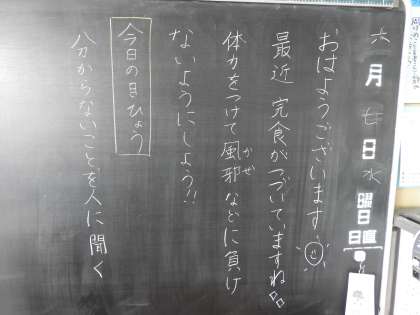 六月七日水曜日
日直
おはようございます
最近 完食がつづいていますね
体力をつけて風邪などに負け
かぜ
ないようにしよう!!
今日の目ひょう
分からないことを人に聞く